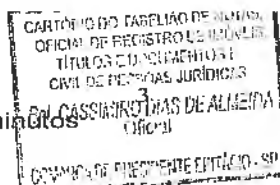 CARTÓRIO DO TABELIÃO DE NOTAS
OFICIAL DE REGISTRO DE IMÓVEIS
TÍTULOS E DOCUMENTOS E
CIVIL DE PESSOAS JURÍDICAS
3
minutos
CASSIMIRO DIAS DE ALMEIDA
Oficial
COMARCA DE PRESIDENTE EPITÁCIO - SP